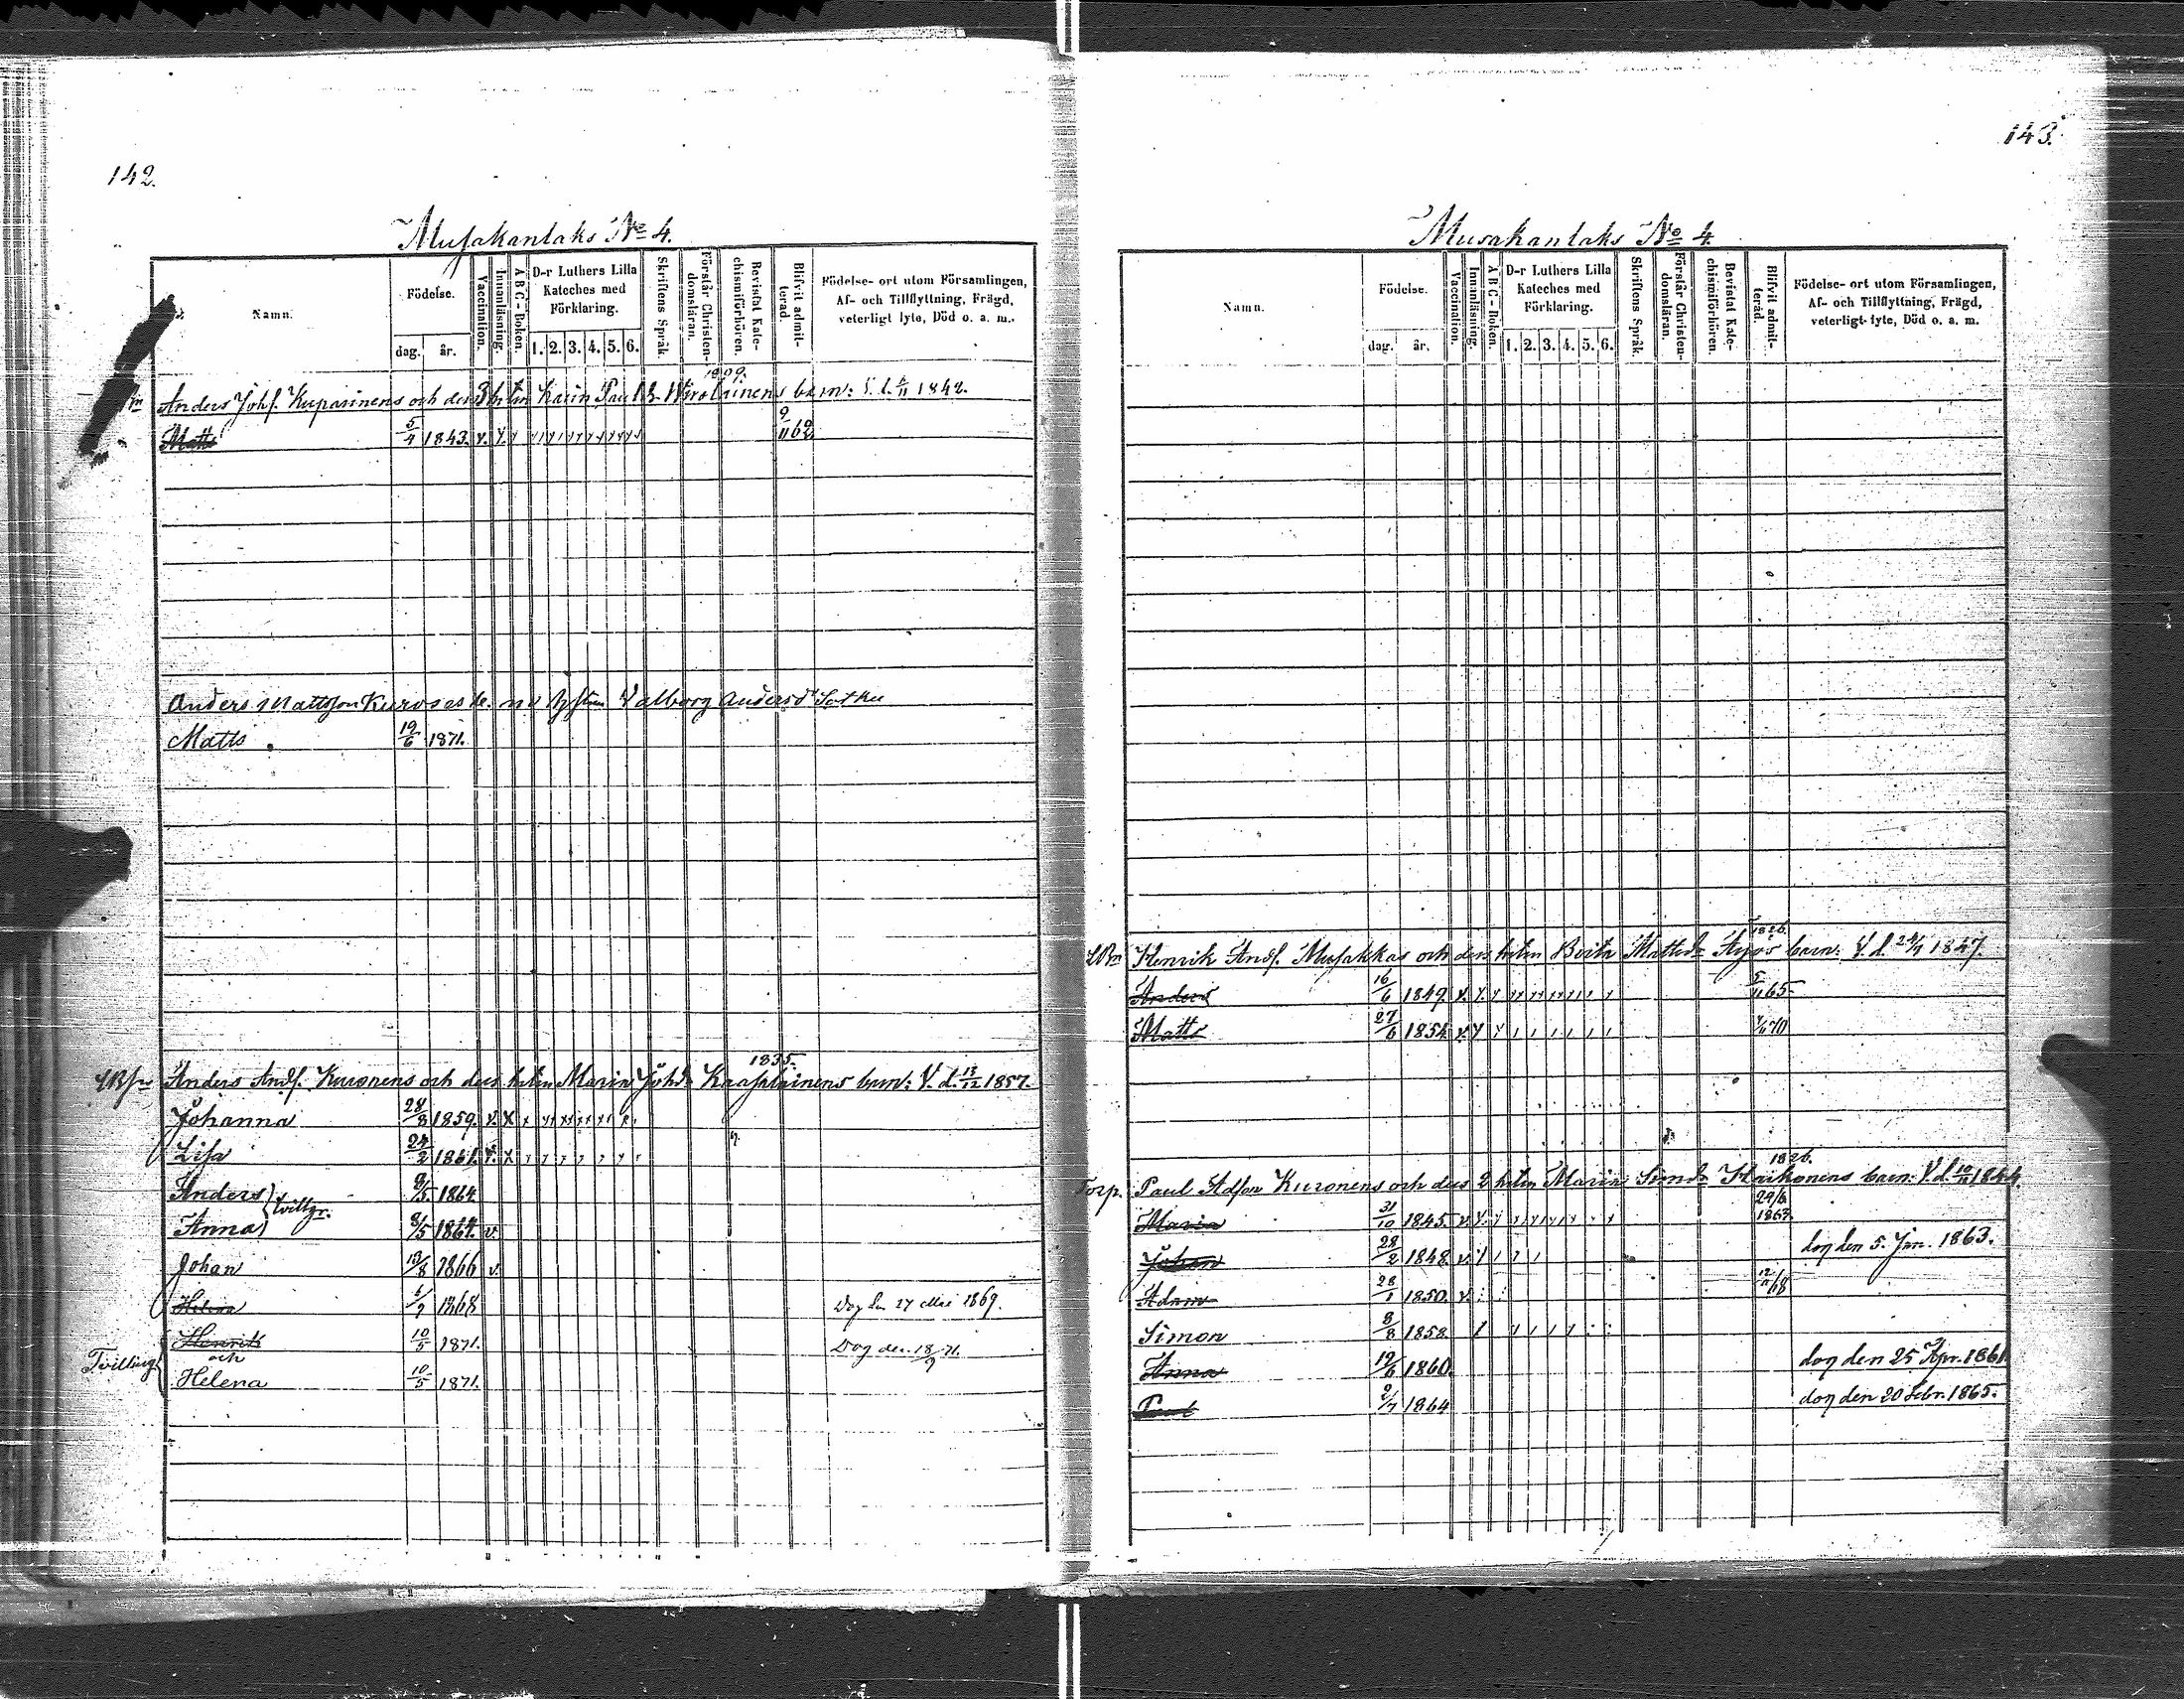 142.
Musakanlaks No 4.
Namn.
Födelse.
dag.
år.
Vaccination.
Innanläsning.
A B C-Boken.
D-r Luthers Lilla
Kateches med
Förklaring.
1. 2. 3. 4. 5. 6.
Skriftens Språk.
Förstår Christen-
domsläran.
Bevistat Kate-
chismiförhören.
Blifvit admit-
terad.
Födelse- ort utom Församlingen,
Af- och Tillflyttning, Frägd,
veterligt lyte, Död o. a. m.
Anders Johs. Kuparinens och dess 3 h:tru Karin Pauls. barn: V. d. 1842.
Matts 5/4 1843. v. 9/11 62
Anders Mattsson Kuronen Valborg Andersd:r
Matts 19/6 1871.
1835.
Anders Ands. Kuronens och dess h:tru Maria Johsdr barn: V. d. 13/12 1857.
Johanna 28/8 1859. v. x
Lisa 24/2 1861. v. x
Anders 9/5 1864
tvillgr.
Anna 9/5 1864. v.
Johan 13/8 1866 v.
Helena 1868 Dog den 27 Mai 1869.
Tvilling
Henrik 10/5 1871. Dog den 18/9 71.
och
Helena 10/5 1871.
143.
Musakanlaks No 4.
Namn.
Födelse.
dag.
år.
Vaccination.
Innanläsning.
A B C-Boken.
D-r Luthers Lilla
Kateches med
Förklaring.
1. 2. 3. 4. 5. 6.
Skriftens Språk.
Förstår Christen-
domsläran.
Bevistat Kate-
chismiförhören.
Blifvit admit-
terad.
Födelse- ort utom Församlingen,
Af- och Tillflyttning, Frägd,
veterligt lyte, Död o. a. m.
1826.
Henrik Ands. Musakkas och dess h:tru Brita Mattsdr barn: V. d. 1847.
Anders 16/6 1849. v. 5/11 65
Matts 27/6 1854. v. 70
1826.
Torp. Paul Adsson Kuronens och dess 2 h:tru Maria Simsdr barn: V. d. 10/11 1844.
Maria 31/10 1845. v. 29/6 1863.
Johan 28/2 1848. v. dog den 5. Jan. 1863.
Adam 28/1 1850. v. 68
Simon 8/8 1858.
Anna 19/6 1860. dog den 25 Apr. 1861.
Paul 2/7 1864 dog den 20 Febr. 1865.